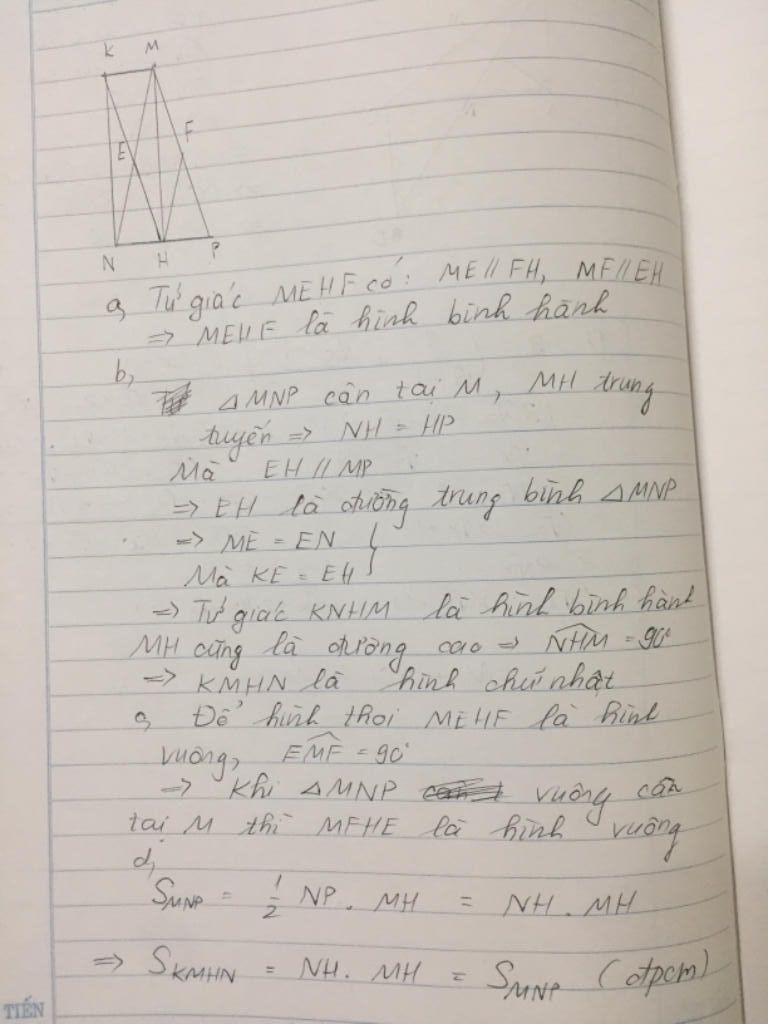 K M
E F
N H P
a, Tứ giác MEHF có: ME // FH, MF // EH
=> MEHF là hình bình hành
b,
△MNP cân tại M, MH trung
tuyến => NH = HP
Mà EH // MP
=> EH là đường trung bình △MNP
=> ME = EN }
Mà KE = EH
=> Tứ giác KNHM là hình bình hành
MH cũng là đường cao => \widehat{NHM} = 90°
=> KMHN là hình chứ nhật
c, Để hình thoi MEHF là hình
vuông, \widehat{EMF} = 90°
=> Khi △MNP vuông cân
tại M thì MFHE là hình vuông
d,
S_{MNP} = 1/2 NP. MH = NH. MH
=> S_{KMHN} = NH. MH = S_{MNP} (đpcm)
TIẾN